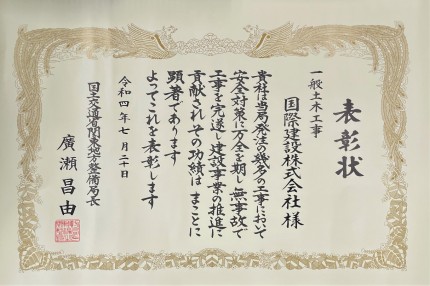 表彰状
一般土木工事
国際建設株式会社 様
貴社は当局発注の幾多の工事において
安全対策に万全を期し無事故で
工事を完遂し建設事業の推進に
貢献されその功績はまことに
顕著であります
よってこれを表彰します
令和四年七月二十日
国土交通省関東地方整備局長
廣瀬昌由